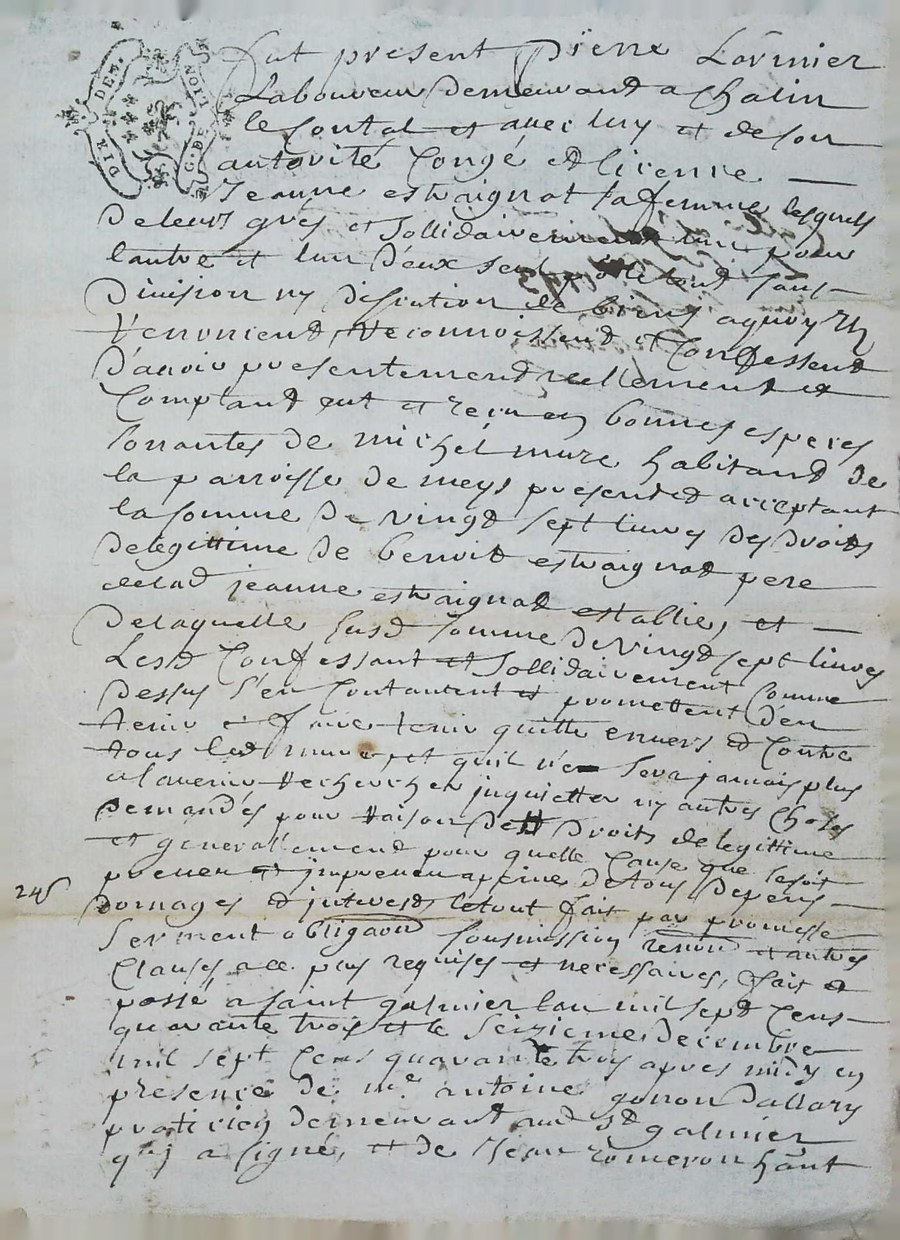 DIE DEM.
G. DE LION
Fut present pierre Lormier
Laboureur demeurant a Chalin
le contal et avec luy et de son
autorité Congé et licence
Jeanne estraignat sa femme lesquels
de leurs grés et sollidairement lun pour
lautre et lun d'eux seul p le tout sans
Division ny discution de biens aquoy Ilz
renoncent reconnoissent et Confessent
D'avoir presentement reellement et
Comptant eut et receu en bonnes especes
Sonnantes de michel mure habitand de
la parroisse de meys present et acceptant
la somme de vingd sept livres des droits
de legittime de benoit estraignad pere
de lad jeanne estraignad establie, et
de laquelle susd somme de vingd sept livres
Lesd Confessant et sollidairement Comme
dessus s'en Contantent et promettent d'en
tenir et faire tenir quitte envers et Contre
tous led mure, et quil n'en sera jamais plus
a lavenir rechercher inquietter ny autres Choses
Demandés pour raison desd Droits de legittime
et generallement pour quelle Cause que ce soit
preveu et impreveu a peine de tous depens
245
domages et interests le tout fait par promesse
Serment obligaon sousmission renon et autres
Clauses a ce plus requises et necessaires, fait et
passé a saint galmier lan mil sept Cens
quarante trois et le seizieme decembre
mil sept Cens quarante trois apres midy en
presence de me antoine gonon dallary
praticien demeurant aud st galmier
qui a signé, et de Jean romeron habnt